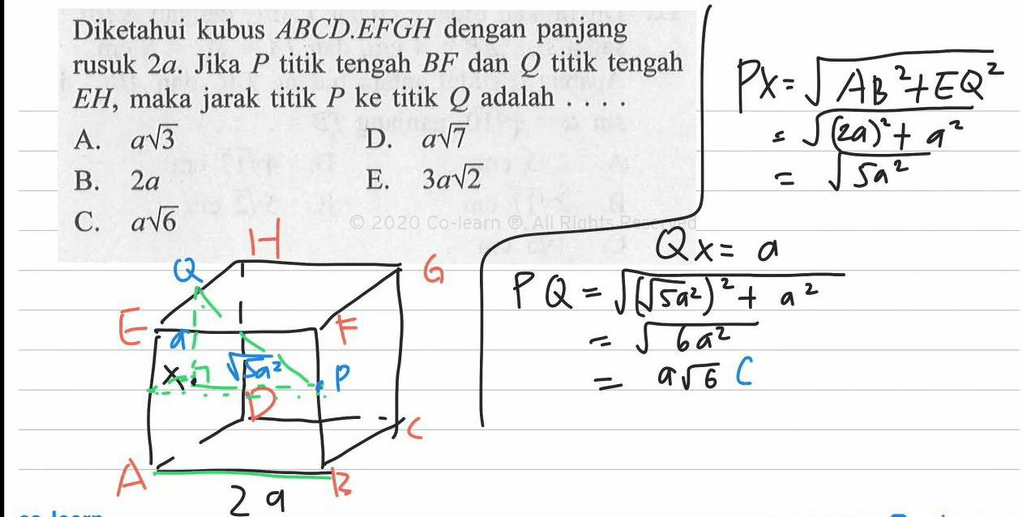 Diketahui kubus ABCD.EFGH dengan panjang
rusuk 2a. Jika P titik tengah BF dan Q titik tengah
EH, maka jarak titik P ke titik Q adalah . . . .
A. a√3
D. a√7
B. 2a
E. 3a√2
C. a√6
© 2020 Co-learn ®. All Rights Reserved
PX = √AB² + EQ²
= √(2a)² + a²
= √5a²
QX = a
PQ = √(√5a²)² + a²
= √6a²
= a√6 C
H
Q
G
E
F
a
X
√5a²
P
D
C
A
B
2a